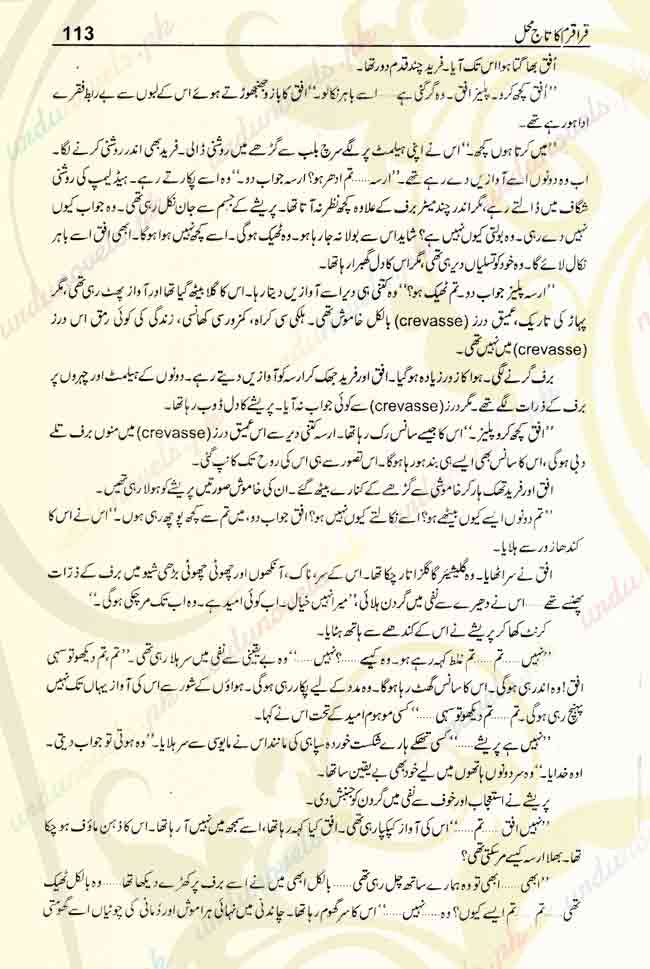 113 قراقرم کا تاج محل
اُفق بھاگتا ہوا اس تک آیا۔ فرید چند قدم دور تھا۔
”اُفق کچھ کرو۔ پلیز افق۔ وہ گر گئی ہے...... اسے باہر نکالو۔“ افق کا بازو جھنجھوڑتے ہوئے اس کے لبوں سے بے ربط فقرے
ادا ہو رہے تھے۔
”میں کرتا ہوں کچھ۔“ اس نے اپنی ہیلمٹ پر لگے سرچ بلب سے گڑھے میں روشنی ڈالی۔ فرید بھی اندر روشنی کرنے لگا۔
اب وہ دونوں اسے آوازیں دے رہے تھے۔ ”ارسہ...... تم ادھر ہو؟ ارسہ جواب دو۔“ وہ اسے پکارتے رہے۔ ہیڈ لیمپ کی روشنی
شگاف میں ڈالتے رہے، مگر اندر چند میٹر برف کے علاوہ کچھ نظر نہ آتا تھا۔ پریشے کے جسم سے جان نکل رہی تھی۔ وہ جواب کیوں
نہیں دے رہی۔ وہ بولتی کیوں نہیں ہے؟ شاید اس سے بولا نہ جا رہا ہو۔ وہ ٹھیک ہوگی۔ اسے کچھ نہیں ہوا ہوگا۔ ابھی افق اسے باہر
نکال لائے گا۔ وہ خود کو تسلیاں دے رہی تھی، مگر اس کا دل گھبرا رہا تھا۔
”ارسہ پلیز جواب دو۔ تم ٹھیک ہو؟“ وہ کتنی ہی دیر اسے آوازیں دیتا رہا۔ اس کا گلا بیٹھ گیا تھا اور آواز پھٹ رہی تھی، مگر
پہاڑ کی تاریک، عمیق درز (crevasse) بالکل خاموش تھی۔ ہلکی سی کراہ، کمزور سی کھانسی، زندگی کی کوئی رمق اس درز
(crevasse) میں نہیں تھی۔
برف گرنے لگی۔ ہوا کا زور زیادہ ہو گیا۔ افق اور فرید جھک کر ارسہ کو آوازیں دیتے رہے۔ دونوں کے ہیلمٹ اور چہروں پر
برف کے ذرات لگے تھے۔ مگر درز (crevasse) سے کوئی جواب نہ آیا۔ پریشے کا دل ڈوب رہا تھا۔
”افق کچھ کرو پلیز۔“ اس کا جیسے سانس رک رہا تھا۔ ارسہ کتنی دیر سے اس عمیق درز (crevasse) میں منوں برف تلے
دبی ہوگی، اس کا سانس بھی ایسے ہی بند ہو رہا ہوگا۔ اس تصور سے ہی اس کی روح تک کانپ گئی۔
افق اور فرید تھک ہار کر خاموشی سے گڑھے کے کنارے بیٹھ گئے۔ ان کی خاموش صورتیں پریشے کو ہولا رہی تھیں۔
”تم دونوں ایسے کیوں بیٹھے ہو؟ اسے نکالتے کیوں نہیں ہو؟ افق جواب دو، میں تم سے کچھ پوچھ رہی ہوں۔“ اس نے اس کا
کندھا زور سے ہلایا۔
افق نے سر اٹھایا۔ وہ گلیشیئر گاگلز اتار چکا تھا۔ اس کے سر، ناک، آنکھوں اور چھوٹی چھوٹی بڑھی شیو میں برف کے ذرات
پھنسے تھے...... اس نے دھیرے سے نفی میں گردن ہلائی، ”میرا نہیں خیال۔ اب کوئی امید ہے۔ وہ اب تک مر چکی ہوگی۔“
کرنٹ کھا کر پریشے نے اس کے کندھے سے ہاتھ ہٹایا۔
”نہیں...... تم...... تم غلط کہہ رہے ہو۔ وہ کیسے......؟ نہیں......“ وہ بے یقینی سے نفی میں سر ہلا رہی تھی۔ ”تم، تم دیکھو تو سہی
افق! وہ اندر ہی ہوگی۔ اس کا سانس گھٹ رہا ہوگا۔ وہ مدد کے لیے پکار رہی ہوگی۔ ہواؤں کے شور سے اس کی آواز یہاں تک نہیں
پہنچ رہی ہوگی۔ تم...... تم دیکھو تو سہی......“ کسی موہوم امید کے تحت اس نے کہا۔
”نہیں ہے پریشے......“ کسی تھکے ہارے شکست خوردہ سپاہی کی مانند اس نے مایوسی سے سر ہلایا۔ ”وہ ہوتی تو جواب دیتی۔
اوہ خدایا۔“ وہ سر دونوں ہاتھوں میں لیے خود بھی بے یقین سا تھا۔
پریشے نے استعجاب اور خوف سے نفی میں گردن کو جنبش دی۔
”نہیں افق...... تم......“ اس کی آواز کپکپا رہی تھی۔ افق کیا کہہ رہا تھا، اسے سمجھ میں نہیں آ رہا تھا۔ اس کا ذہن ماؤف ہو چکا
تھا۔ بھلا ارسہ کیسے مر سکتی تھی؟
”ابھی...... ابھی تو وہ ہمارے ساتھ چل رہی تھی...... بالکل ابھی میں نے اسے برف پر کھڑے دیکھا تھا...... وہ بالکل ٹھیک
تھی...... تم...... تم ایسے کیوں؟ وہ...... نہیں......“ اس کا سر گھوم رہا تھا۔ چاندنی میں نہائی ہراموش اور دُمانی کی چوٹیاں اسے گھومتی